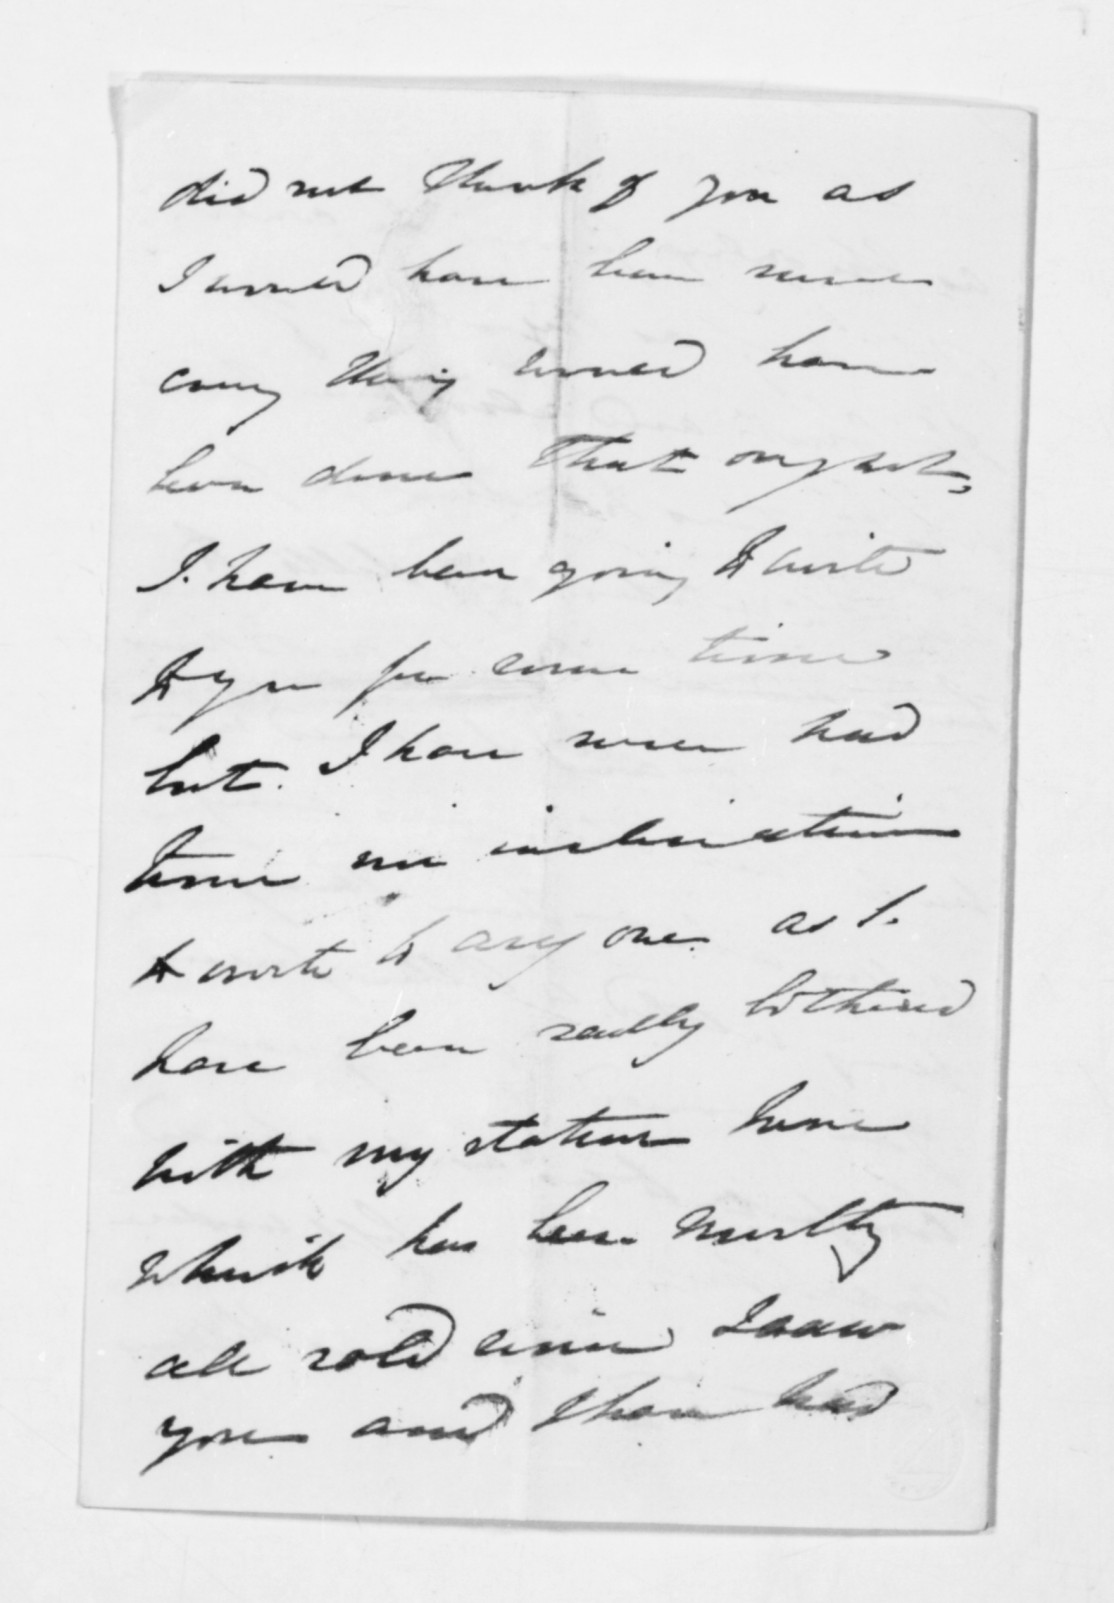 did not think of you as
I would have been sure
every thing would have
been done that ought,
I have been going to write
to you for some time
but I have never had
time nor inclination
to write to any one as I
have been sadly bothered
with my station
which has been mostly
all sold since I saw
you and I have had